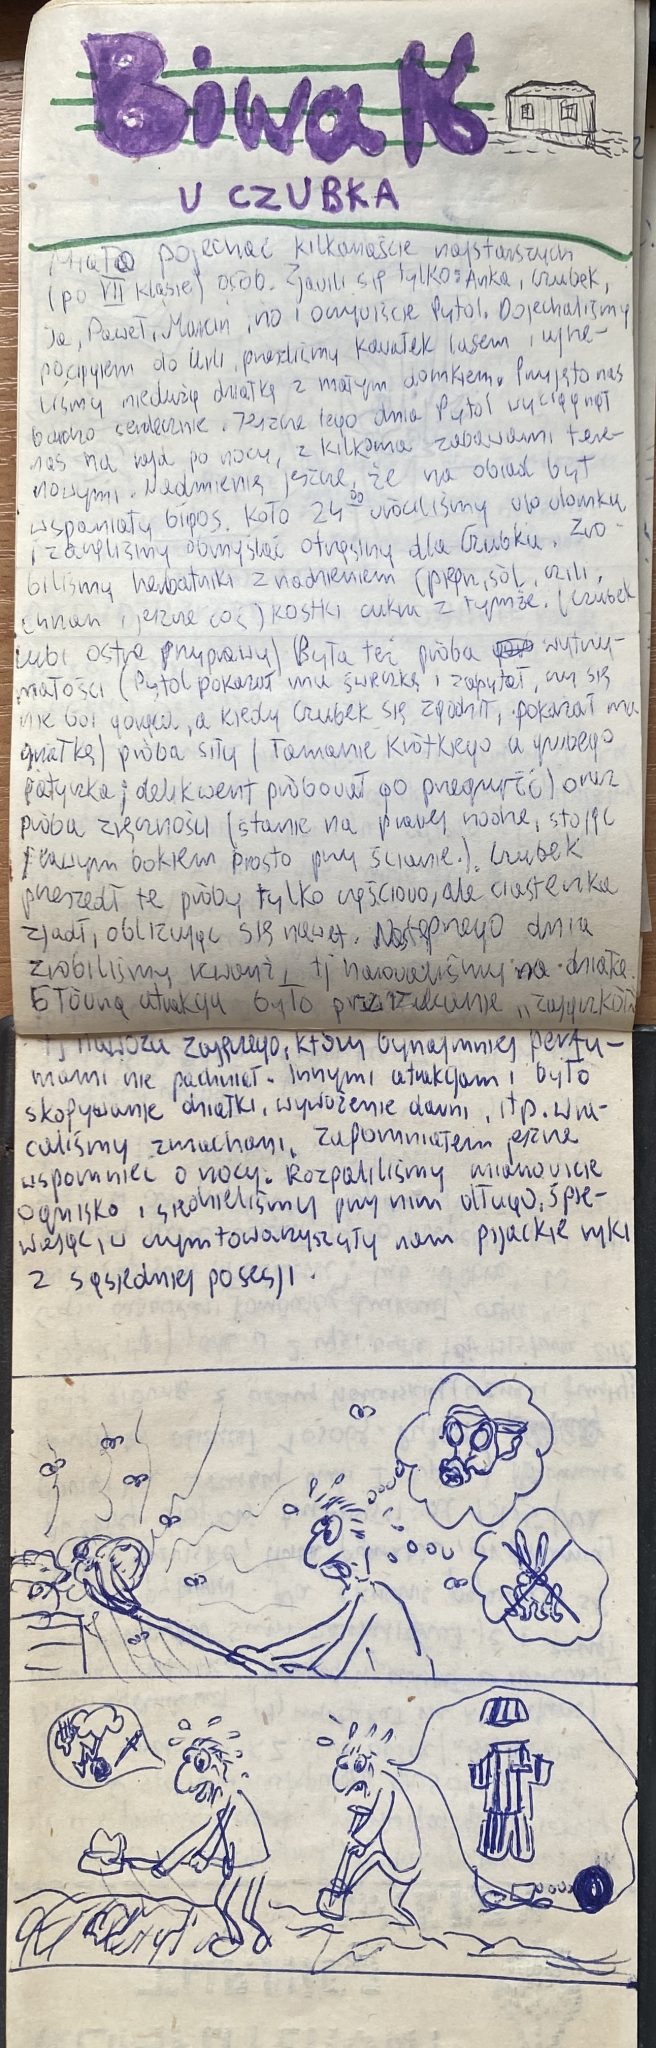 Biwak
U CZUBKA
Miało pojechać kilkanaście najstarszych
(po VII klasie) osób. Zjawili się tylko: Anka, Czubek,
Ja, Paweł, Marcin, no i oczywiście Pytol. Dojechaliśmy
pociągiem do Urli, przeszliśmy kawałek lasem i ujrze-
liśmy niedużą działkę z małym domkiem. Przyjęto nas
bardzo serdecznie. Jeszcze tego dnia Pytol wyciągnął
nas na rajd po nocy, z kilkoma zabawami tere-
nowymi. Nadmienię jeszcze, że na obiad był
wspaniały bigos. Koło 24⁰⁰ wróciliśmy do domku
i zaczęliśmy obmyślać otrzęsiny dla Czubka. Zro-
biliśmy herbatniki z nadzieniem (pieprz, sól, czili,
chrzan i jeszcze coś) kostki cukru z tymże. (Czubek
lubi ostre przyprawy) Była też próba wytrzy-
małości (Pytol pokazał mu świeczkę i zapytał, czy się
nie boi gorąca, a kiedy Czubek się zgodził, pokazał mu
grzałkę) próba siły (łamanie krótkiego a grubego
patyczka; delikwent próbował go przegryźć) oraz
próba zręczności (stanie na prawej nodze, stojąc
prawym bokiem prosto przy ścianie.). Czubek
przeszedł te próby tylko częściowo, ale ciasteczka
zjadł, oblizując się nawet. Następnego dnia
zrobiliśmy kwant, tj harowaliśmy na działce.
Główną atrakcją było przerzucanie „zajączków"
tj nawozu zajęczego, który bynajmniej perfu-
mami nie pachniał. Innymi atrakcjami było
skopywanie działki, wywożenie darni, itp. Wra-
caliśmy zmachani. Zapomniałem jeszcze
wspomnieć o nocy. Rozpaliliśmy mianowicie
ognisko i siedzieliśmy przy nim długo, śpie-
wając, w czym towarzyszyły nam pijackie ryki
z sąsiedniej posesji.